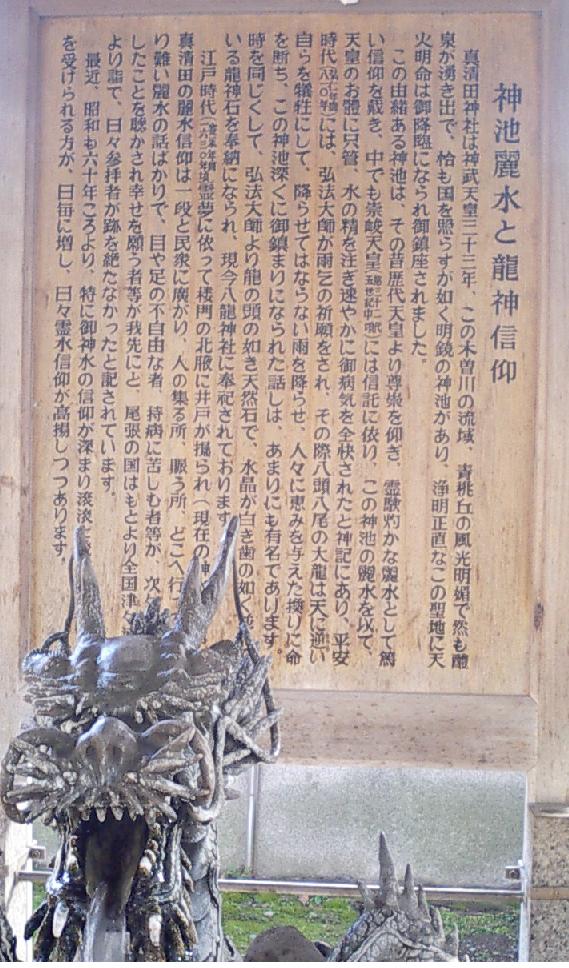 神池麗水と龍神信仰
真清田神社は神武天皇三十三年、この木曽川の流域、青桃丘の風光明媚で然も醴
泉が湧き出で、恰も国を照らすが如く明鏡の神池があり、浄明正直なこの聖地に天
火明命は御降臨になられ御鎮座されました。
この由緒ある神池は、その昔歴代天皇より尊崇を仰ぎ、霊験灼かな麗水として篤
い信仰を戴き、中でも崇峻天皇には信託に依り、この神池の麗水を以て、
天皇のお體に只管、水の精を注ぎ速やかに御病気を全快されたと神記にあり、平安
時代には、弘法大師が雨乞の祈願をされ、その際八頭八尾の大龍は天に逆い
自らを犠牲にして、降らせてはならない雨を降らせ、人々に恵みを与えた換りに命
を断ち、この神池深くに御鎮まりになられた話しは、あまりにも有名であります。
時を同じくして、弘法大師より龍の頭の如き天然石で、水晶が白き歯の如く
いる龍神石を奉納になられ、現今八龍神社に奉祀されております
江戸時代霊夢に依って楼門の北脇に井戸が掘られ（現在の神
真清田の麗水信仰は一段と民衆に廣がり、人の集る所、賑う所、どこへ行
り難い麗水の話ばかりで、目や足の不自由な者、持病に苦しむ者等が、次
したことを聴かされ幸せを願う者等が我先にと、尾張の国はもとより全国津々
より詣で、日々参拝者が跡を絶たなかったと記されています。
最近、昭和も六十年ころより、特に御神水の信仰が深まり滾滾と
を受けられる方が、日毎に増し、日々霊水信仰が高揚しつつあります。